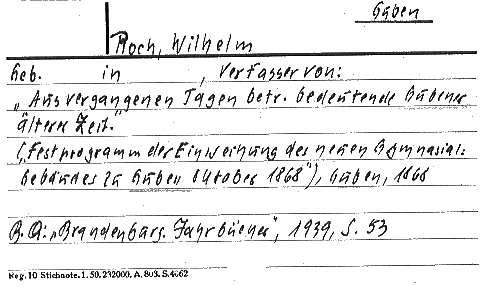 Guben
Roch, Wilhelm
Geb. in , Verfasser von:
„Aus vergangenen Tagen betr. bedeutende Gubener
älterer Zeit."
(„Festprogramm der Einweihung des neuen Gymnasial=
gebäudes zu Guben Oktober 1868"), Guben, 1868
B. Q: „Brandenburg. Jahrbücher", 1939, S. 53
Reg. 10 Stichnote. 1. 50. 232000. A. 803. S. 4062